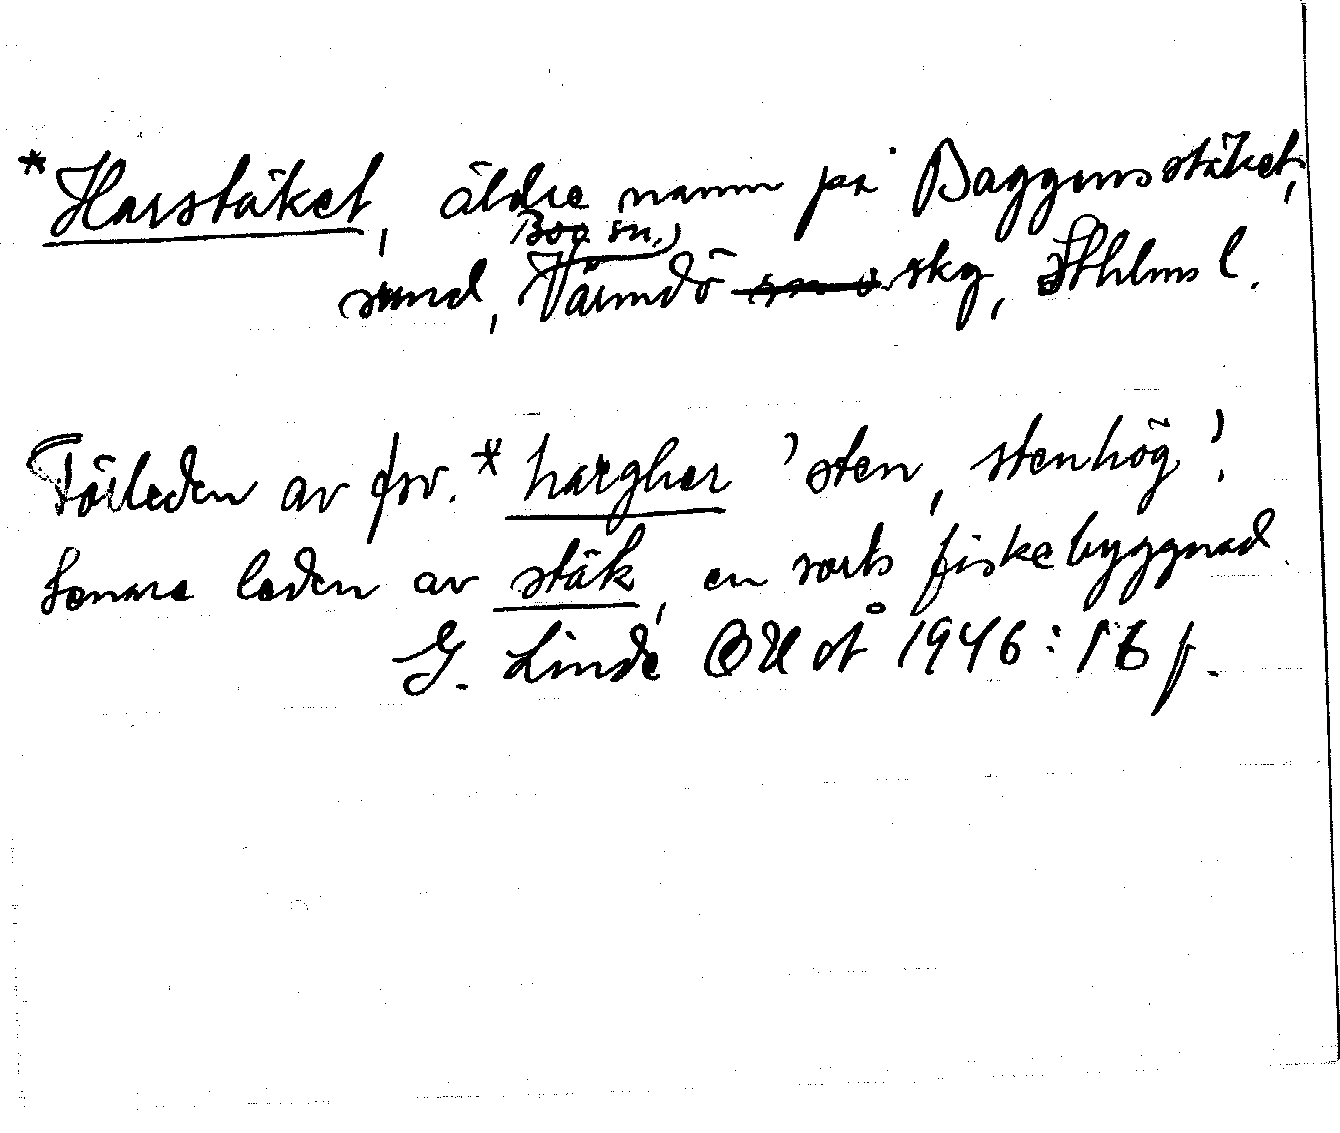 *Harstäket, äldre namn på Baggensstäket,
Boo sn,
sund, Värmdö skg, Sthlms l.
Förleden av fsv. *hargher 'sten, stenhög'.
Senare leden av stäk, en sorts fiskebyggnad
G. Linde OUÅ 1946: 16 f.